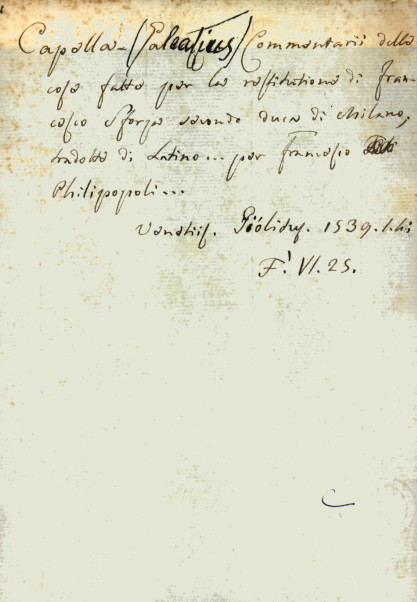 Capella (Galeatius) Commentarii delle
cose fatte per la restitutione di Fran-
cesco Sforza secondo duca di Milano,
tradotte di Latino... per Francesco
Philipopoli...
Venetiis. Giolitus. 1539.
F. VI. 25.